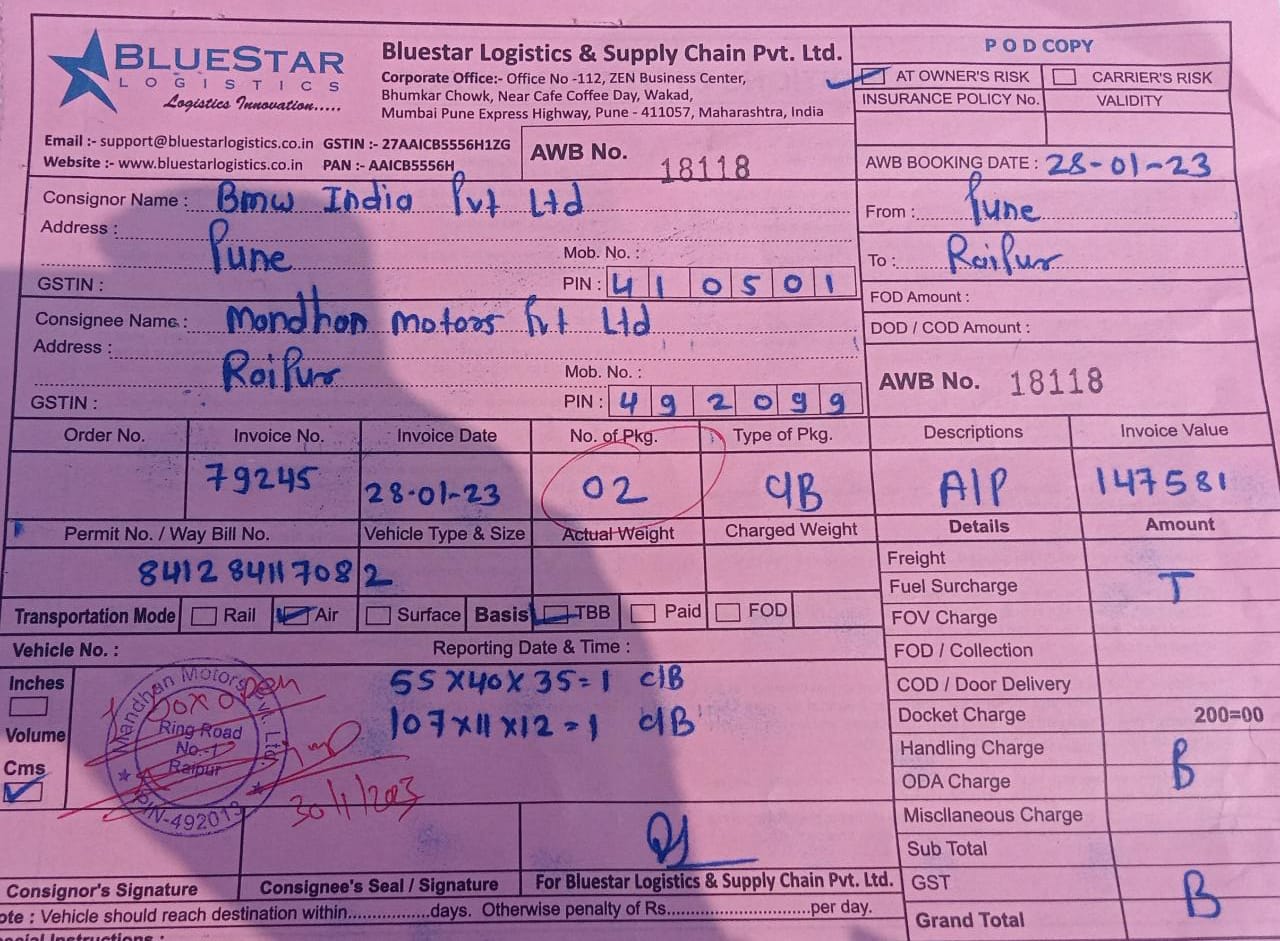 BLUESTAR
LOGISTICS
Logistics Innovation.....
Bluestar Logistics & Supply Chain Pvt. Ltd.
Corporate Office:- Office No -112, ZEN Business Center,
Bhumkar Chowk, Near Cafe Coffee Day, Wakad,
Mumbai Pune Express Highway, Pune - 411057, Maharashtra, India
Email :- support@bluestarlogistics.co.in GSTIN :- 27AAICB5556H1ZG
Website :- www.bluestarlogistics.co.in PAN :- AAICB5556H
AWB No. 18118
POD COPY
AT OWNER'S RISK CARRIER'S RISK
INSURANCE POLICY No. VALIDITY
AWB BOOKING DATE : 28-01-23
Consignor Name : Bmw India Pvt Ltd
Address :
Pune
Mob. No. :
GSTIN : PIN : 410501
From : Pune
To : Raipur
FOD Amount :
DOD / COD Amount :
Consignee Name : Mandhan Motors Pvt Ltd
Address :
Raipur
Mob. No. :
GSTIN : PIN : 492099
AWB No. 18118
Order No. Invoice No. Invoice Date No. of Pkg. Type of Pkg. Descriptions Invoice Value
79245 28-01-23 02 C/B A/P 147581
Permit No. / Way Bill No. Vehicle Type & Size Actual Weight Charged Weight Details Amount
841284117082
Freight
Fuel Surcharge T
FOV Charge
FOD / Collection
COD / Door Delivery
Docket Charge 200=00
Handling Charge
B
ODA Charge
Miscllaneous Charge
Sub Total
GST
B
Grand Total
Transportation Mode Rail Air Surface Basis TBB Paid FOD
Vehicle No. : Reporting Date & Time :
Inches
Volume
Cms
55x40x35=1 C/B
107x11x12=1 C/B
Mandhan Motors Pvt. Ltd.
Ring Road
No.-1
Raipur
PIN-492013
1 box open
30/1/2023
Consignor's Signature Consignee's Seal / Signature For Bluestar Logistics & Supply Chain Pvt. Ltd.
ote : Vehicle should reach destination within.................days. Otherwise penalty of Rs..............................per day.
ecial Instructions :